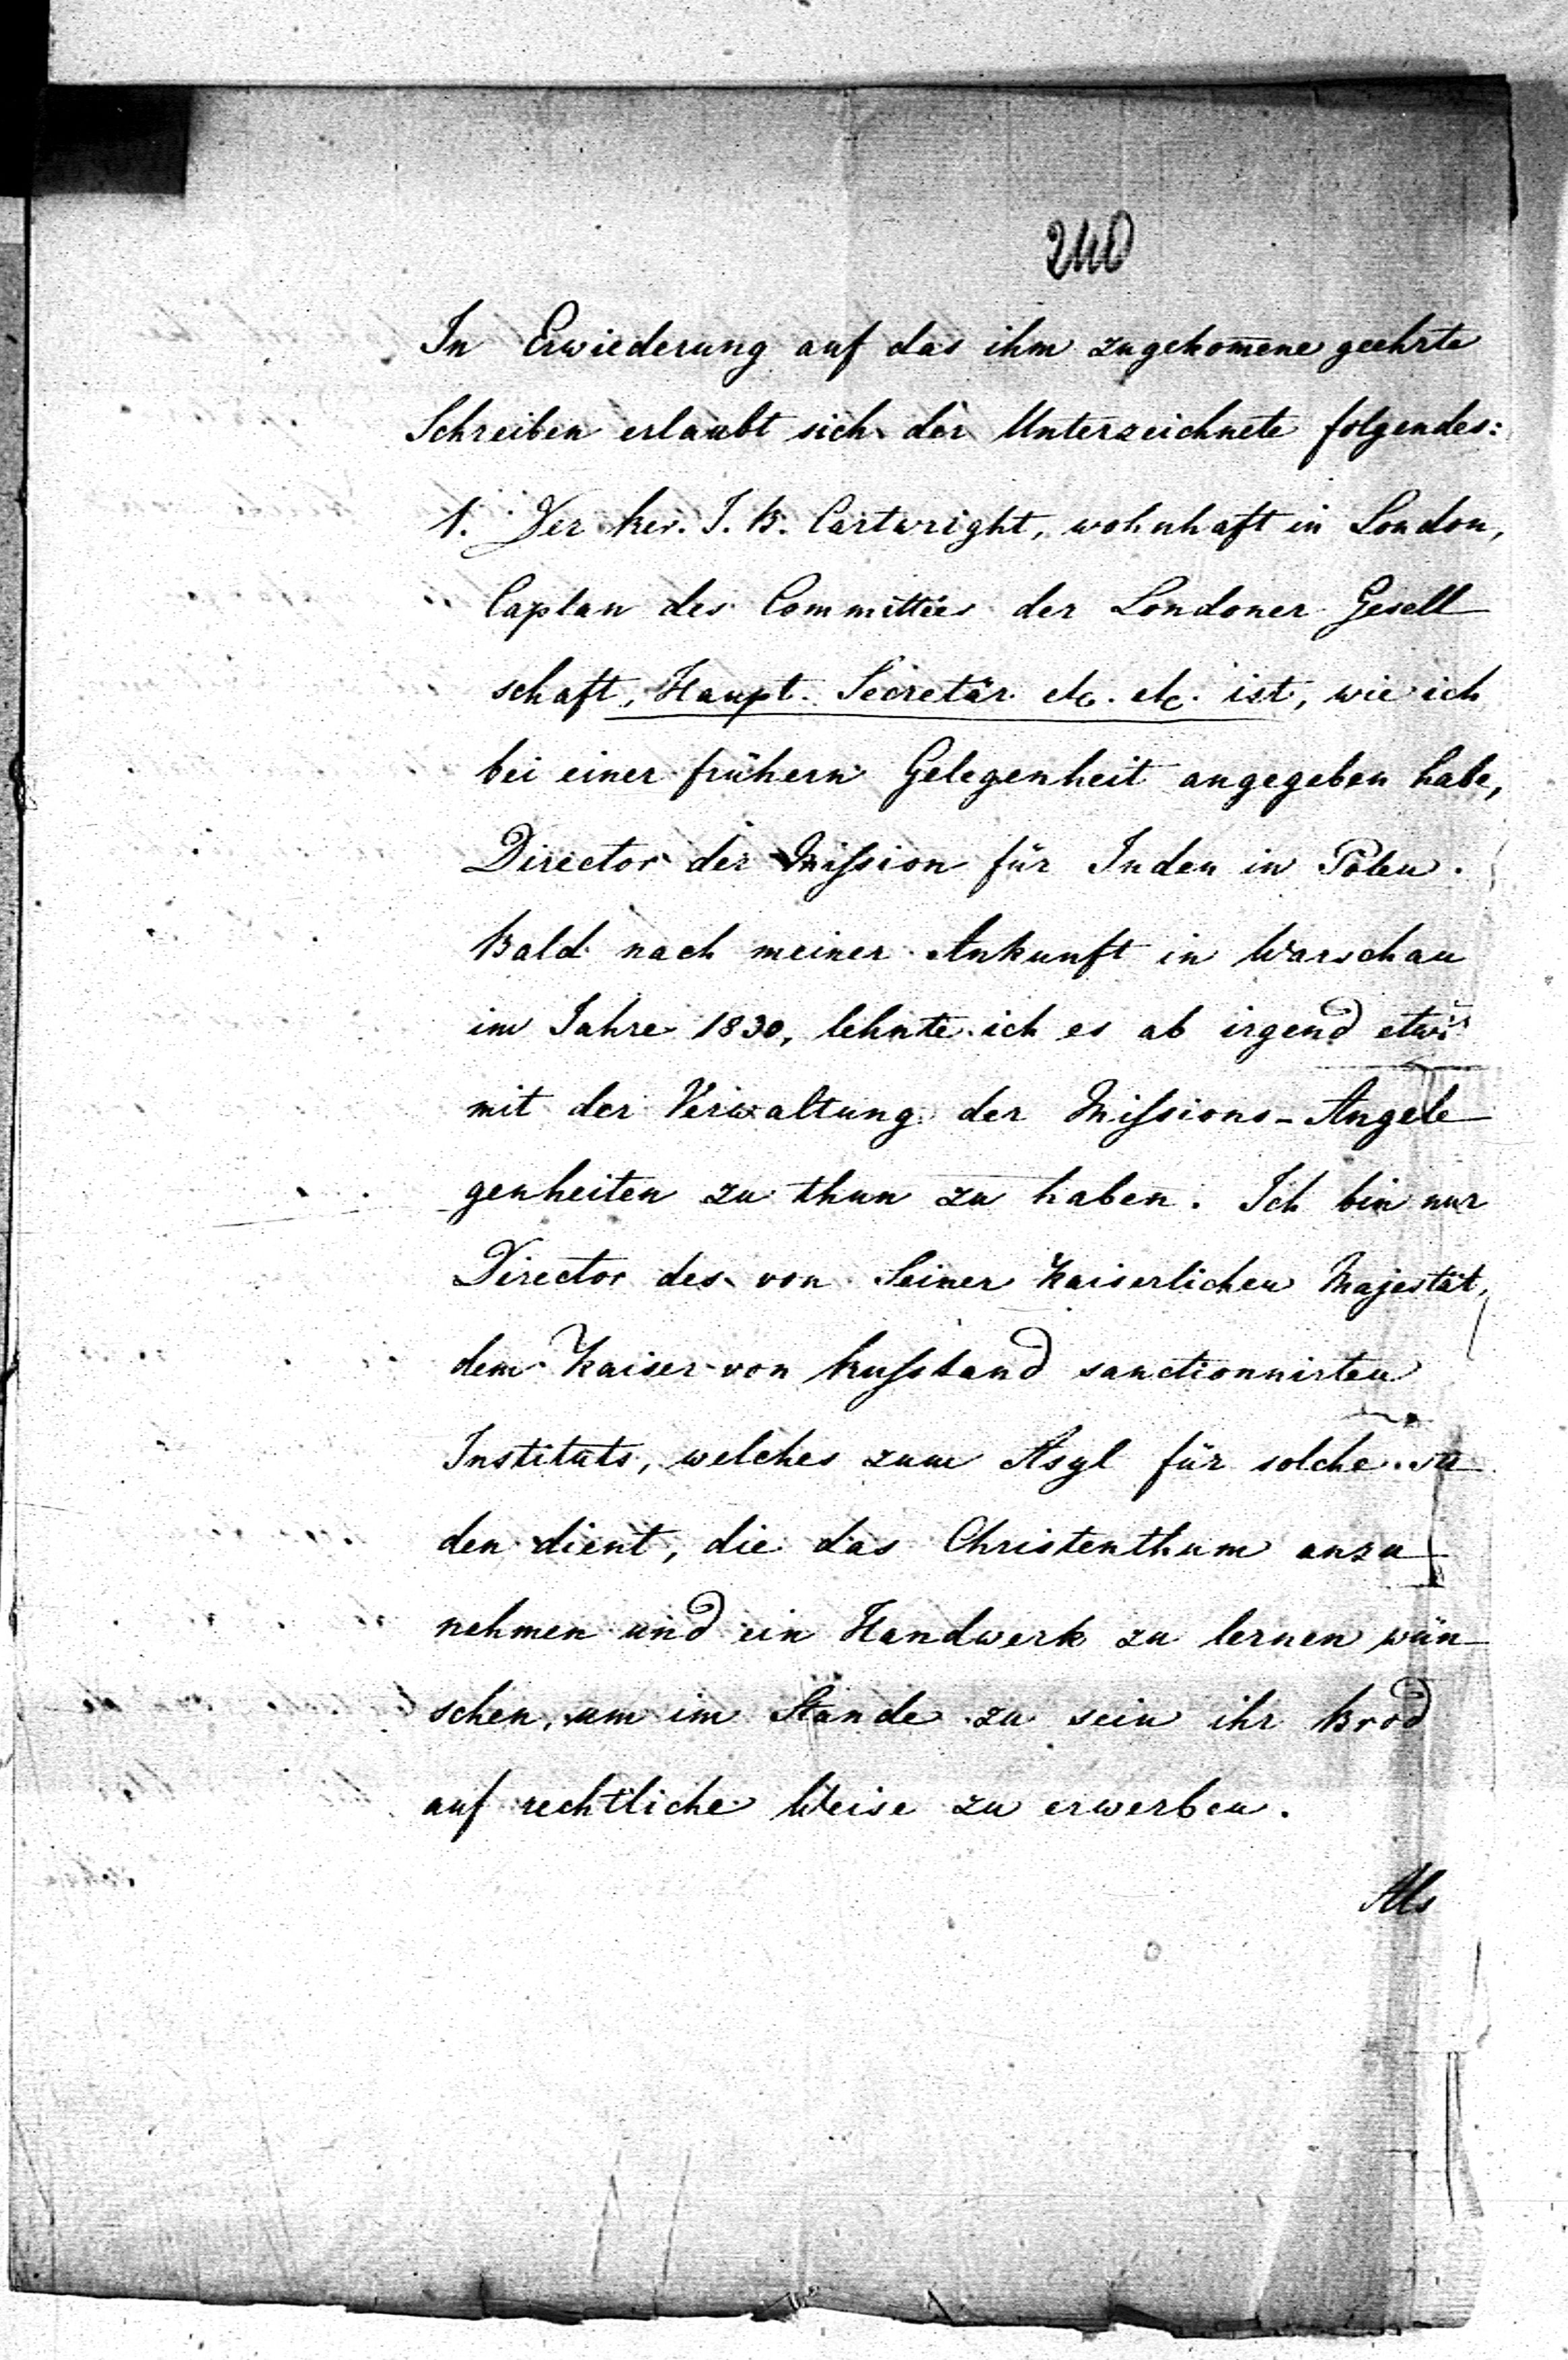 240
In Erwiederung auf das ihm zugekom̅ene geehrte
Schreiben erlaubt sich der Unterzeichnete folgendes:
1. Der Rev. J. B. Cartwright, wohnhaft in London,
Caplan des Committées der Londoner Gesell
schaft, Haupt. Secretär etc. etc. ist, wie ich
bei einer frühern Gelegenheit angegeben habe,
Director der Mission für Juden in Polen.
Bald nach meiner Ankunft in Warschau
im Jahre 1830, lehnte ich es ab irgend etwas
mit der Verwaltung der Missions-Angele
genheiten zu thun zu haben. Ich bin nur
Director des von Seiner Kaiserlichen Majestät,
dem Kaiser von Russland sanctionnirten
Instituts, welches zum Asyl für solche
den dient, die das Christenthum anzu
nehmen und ein Handwerk zu lernen wün
schen, um im Stande zu sein ihr Brod
auf rechtliche Weise zu erwerben.
Als